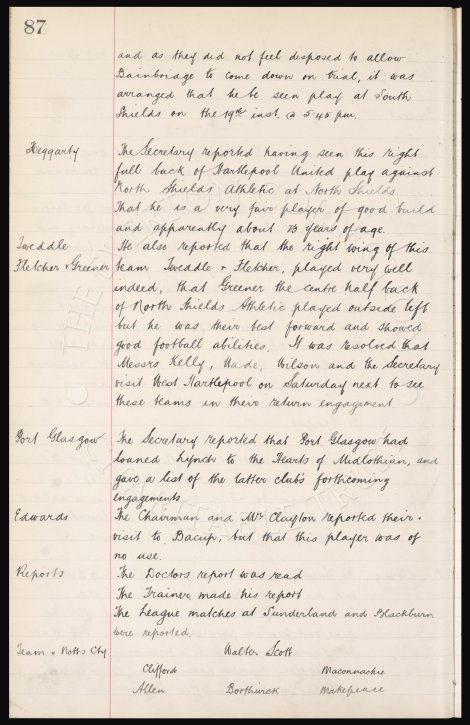 87
and as they did not feel disposed to allow
Bainbridge to come down on trial, it was
arranged that he be seen play at South
Shields on the 19th inst. @ 5.45 pm.
Heggarty
The Secretary reported having seen this right
full back of Hartlepool United play against
North Shields Athletic at North Shields
That he is a very fair player of good build
and apparently about 23 years of age.
Tweddle
He also reported that the right wing of this
Fletcher & Greener
team Tweddle & Fletcher, played very well
indeed, that Greener the centre half back
of North Shields Athletic played outside left
but he was their best forward and showed
good football abilities. It was resolved that
Messrs Kelly, Wade, Wilson and the Secretary
visit West Hartlepool on Saturday next to see
these teams in their return engagement
Port Glasgow
The Secretary reported that Port Glasgow had
loaned Lynch to the Hearts of Midlothian, and
gave a list of the latter club's forthcoming
engagements
Edwards
The Chairman and Mr Clayton reported their
visit to Bacup, but that this player was of
no use.
Reports
The Doctors report was read
The Trainer made his report
The League matches at Sunderland and Blackburn
were reported.
Team v Notts Cty
Walter Scott
Clifford Maconnachie
Allen Borthwick Makepeace